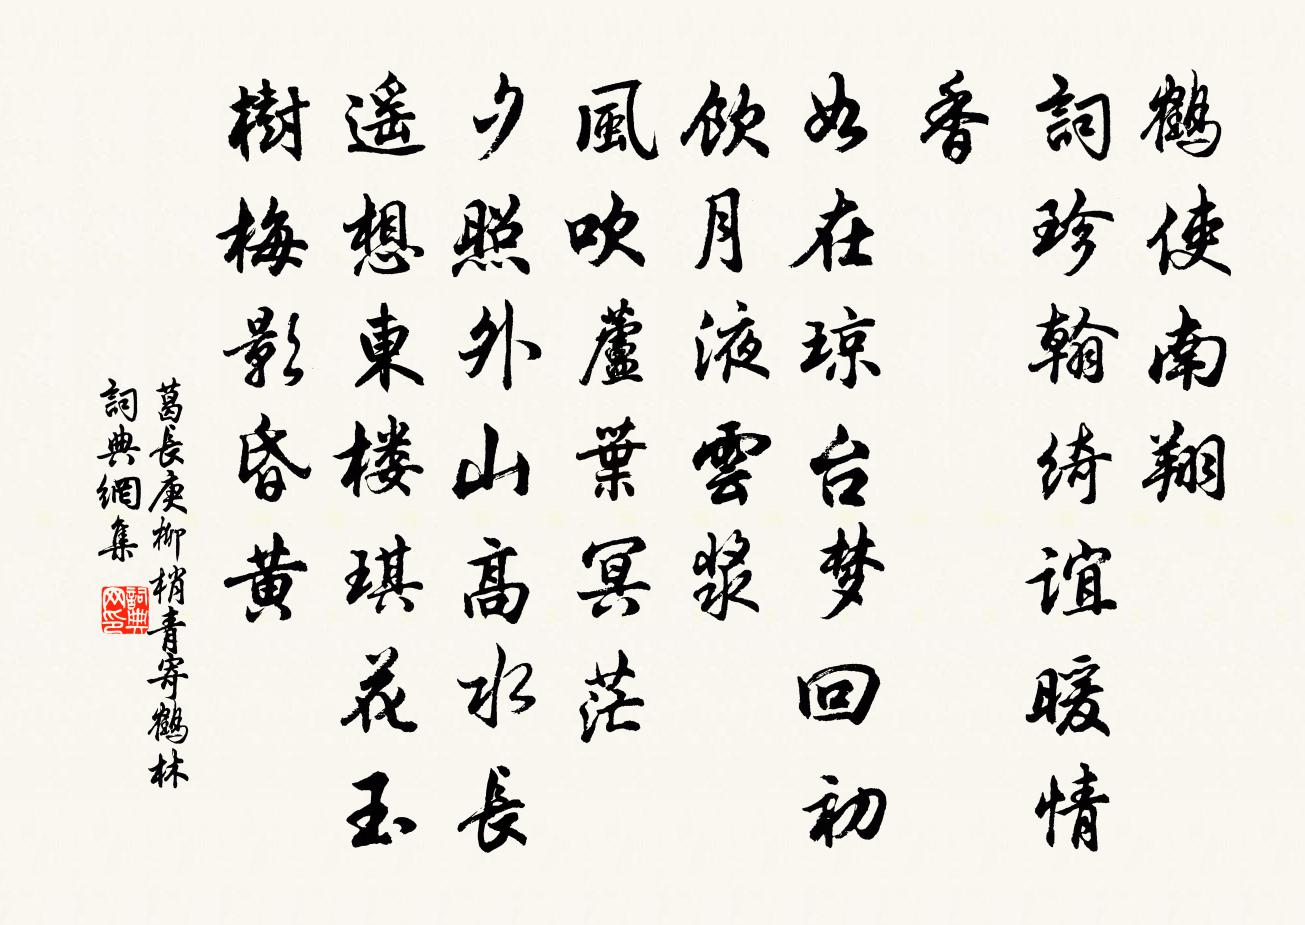 鹤使南翔
詞珍翰绮谊暖情
香
如在琼台梦回初
飲月液雲漿
風吹蘆葉冥茫
夕照外山高水長
遥想東楼琪花玉
樹梅影昏黄
葛長庚柳梢青寄鶴林
詞典網集
詞典网印